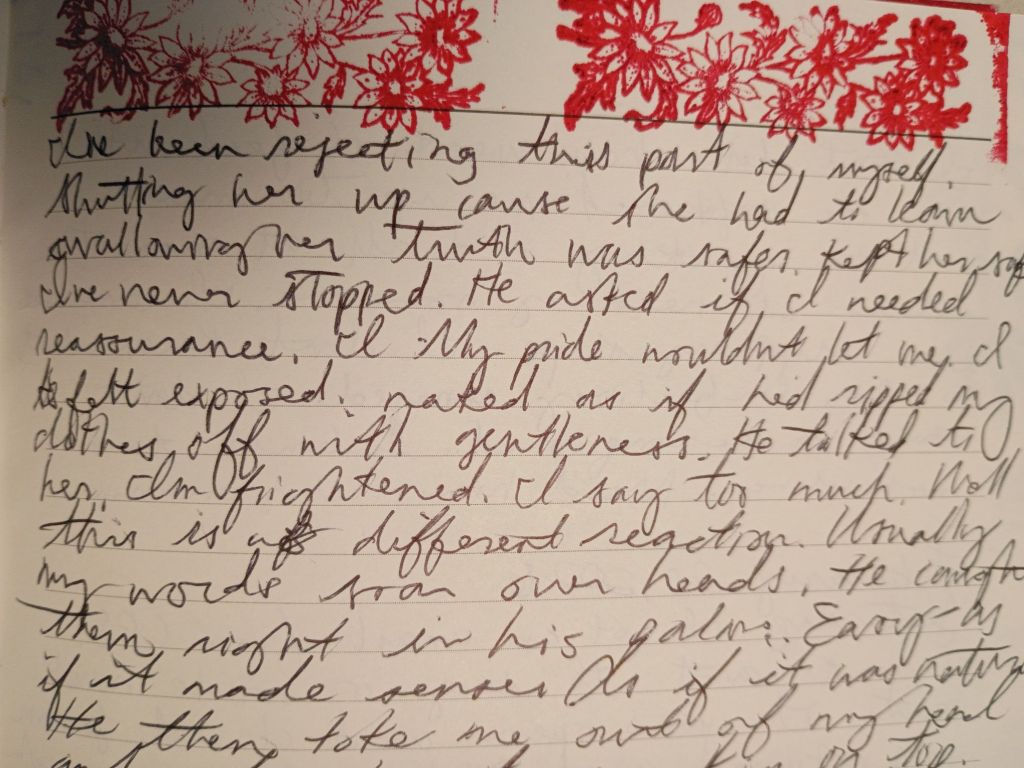 I've been rejecting this part of myself.
Shutting her up cause she had to learn
swallowing her truth was safer. Kept her saf
I've never stopped. He asked if I needed
reassurance. I My pride wouldn't let me. I
felt exposed. naked as if he'd ripped my
clothes off with gentleness. He talked to
her. I'm frightened. I say too much. Well
this is a different reaction. Usually
my words soar over heads. He caught
them right in his palms. Easy-as
if it made sense. As if it was natur
He then, toke me out of my head
on top.